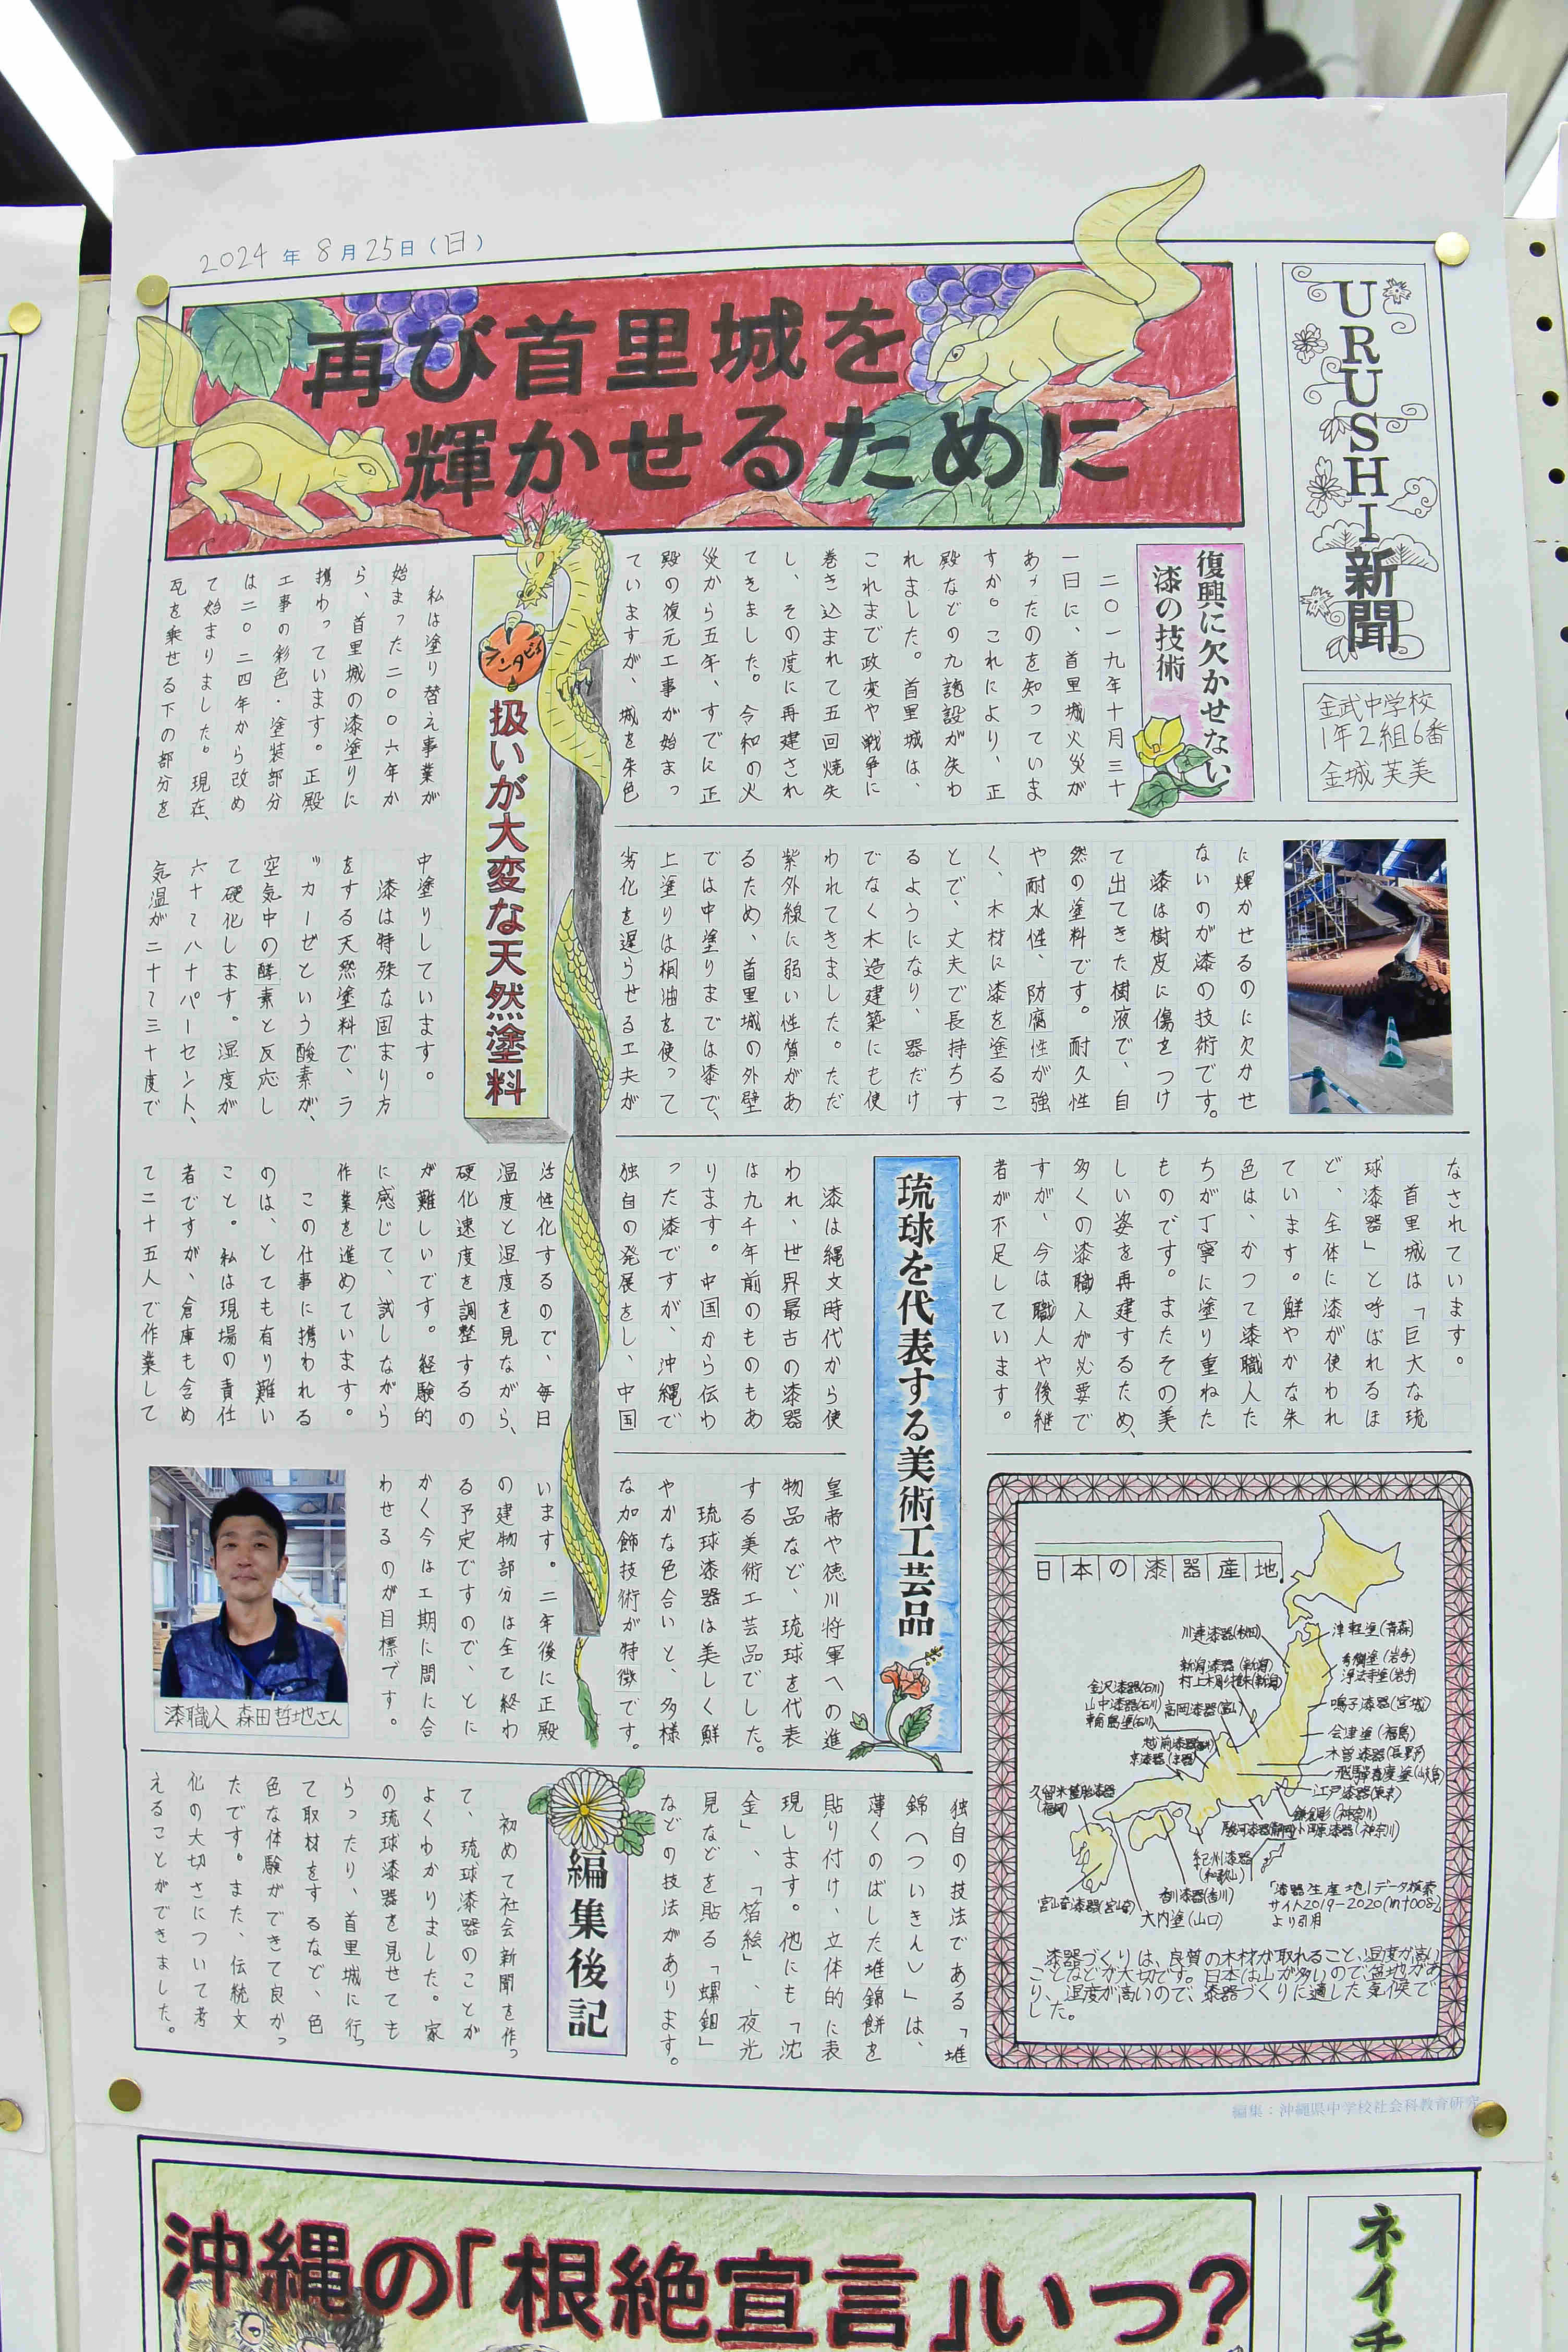 2024年8月25日(日)
再び首里城を
輝かせるために
URUSHI新聞
金武中学校
1年2組6番
金城 芙美
復興に欠かせない
漆の技術
二〇一九年十月三十
一日に、首里城火災が
あったのを知っていま
すか。これにより、正
殿などの九施設が失わ
れました。首里城は、
これまで政変や戦争に
巻き込まれて五回焼失
し、その度に再建され
てきました。令和の火
災から五年、すでに正
殿の復元工事が始まっ
ていますが、城を朱色
に輝かせるのに欠かせ
ないのが漆の技術です。
漆は樹皮に傷をつけ
て出てきた樹液で、自
然の塗料です。耐久性
や耐水性、防腐性が強
く、木材に漆を塗るこ
とで、丈夫で長持ちす
るようになり、器だけ
でなく木造建築にも使
われてきました。ただ
紫外線に弱い性質があ
るため、首里城の外壁
では中塗りまでは漆で、
上塗りは桐油を使って
劣化を遅らせる工夫が
なされています。
首里城は「巨大な琉
球漆器」と呼ばれるほ
ど、全体に漆が使われ
ています。鮮やかな朱
色は、かつて漆職人た
ちが丁寧に塗り重ねた
ものです。またその美
しい姿を再建するため、
多くの漆職人が必要で
すが、今は職人や後継
者が不足しています。
琉球を代表する美術工芸品
漆は縄文時代から使
われ、世界最古の漆器
は九千年前のものもあ
ります。中国から伝わ
った漆ですが、沖縄で
独自の発展をし、中国
皇帝や徳川将軍への進
物品など、琉球を代表
する美術工芸品でした。
琉球漆器は美しく鮮
やかな色合いと、多様
な加飾技術が特徴です。
独自の技法である「堆
錦(ついきん)」は、
薄くのばした堆錦餅を
貼り付け、立体的に表
現します。他にも「沈
金」、「箔絵」夜光
貝などを貼る「螺鈿」
などの技法があります。
インタビュー
扱いが大変な天然塗料
私は塗り替え事業が
始まった二〇〇六年か
ら、首里城の漆塗りに
携わっています。正殿
工事の彩色・塗装部分
は二〇二四年から改め
て始まりました。現在、
瓦を乗せる下の部分を
中塗りしています。
漆は特殊な固まり方
をする天然塗料で、ラ
ッカーゼという酸素が、
空気中の酵素と反応し
て硬化します。湿度が
六十〜八十パーセント、
気温が二十〜三十度で
活性化するので、毎日
温度と湿度を見ながら、
硬化速度を調整するの
が難しいです。経験的
に感じて、試しながら
作業を進めています。
この仕事に携われる
のは、とても有り難い
こと。私は現場の責任
者ですが、倉庫も含め
て二十五人で作業して
います。二年後に正殿
の建物部分は全て終わ
る予定ですので、とに
かく今は工期に間に合
わせるのが目標です。
漆職人 森田哲地さん
日本の漆器産地
川連漆器(秋田)
新潟漆器(新潟)
村上木彫堆朱(新潟)
金沢漆器(石川)
山中漆器(石川)
輪島塗(石川)
高岡漆器(富山)
京漆器(京都)
津軽塗(青森)
秀衡塗(岩手)
浄法寺塗(岩手)
鳴子漆器(宮城)
会津塗(福島)
木曽漆器(長野)
江戸漆器(東京)
鎌倉彫(神奈川)
小田原漆器(神奈川)
紀州漆器
(和歌山)
香川漆器(香川)
大内塗(山口)
宮崎漆器(宮崎)
「漆器生産地」データ検索
サイト2019-2020(mt008)
より引用
漆器づくりは、良質の木材が取れること、湿度が高い
ことなどが大切です。日本は山が多いので盆地があ
り、湿度が高いので、漆器づくりに適した気候で
した。
編集後記
初めて社会新聞を作っ
て、琉球漆器のことが
よくわかりました。家
の琉球漆器を見せても
らったり、首里城に行っ
て取材をするなど、色
色な体験ができて良かっ
たです。また、伝統文
化の大切さについて考
えることができました。
編集：沖縄県中学校社会科教育研究
沖縄の「根絶宣言」いつ?
ネイチ